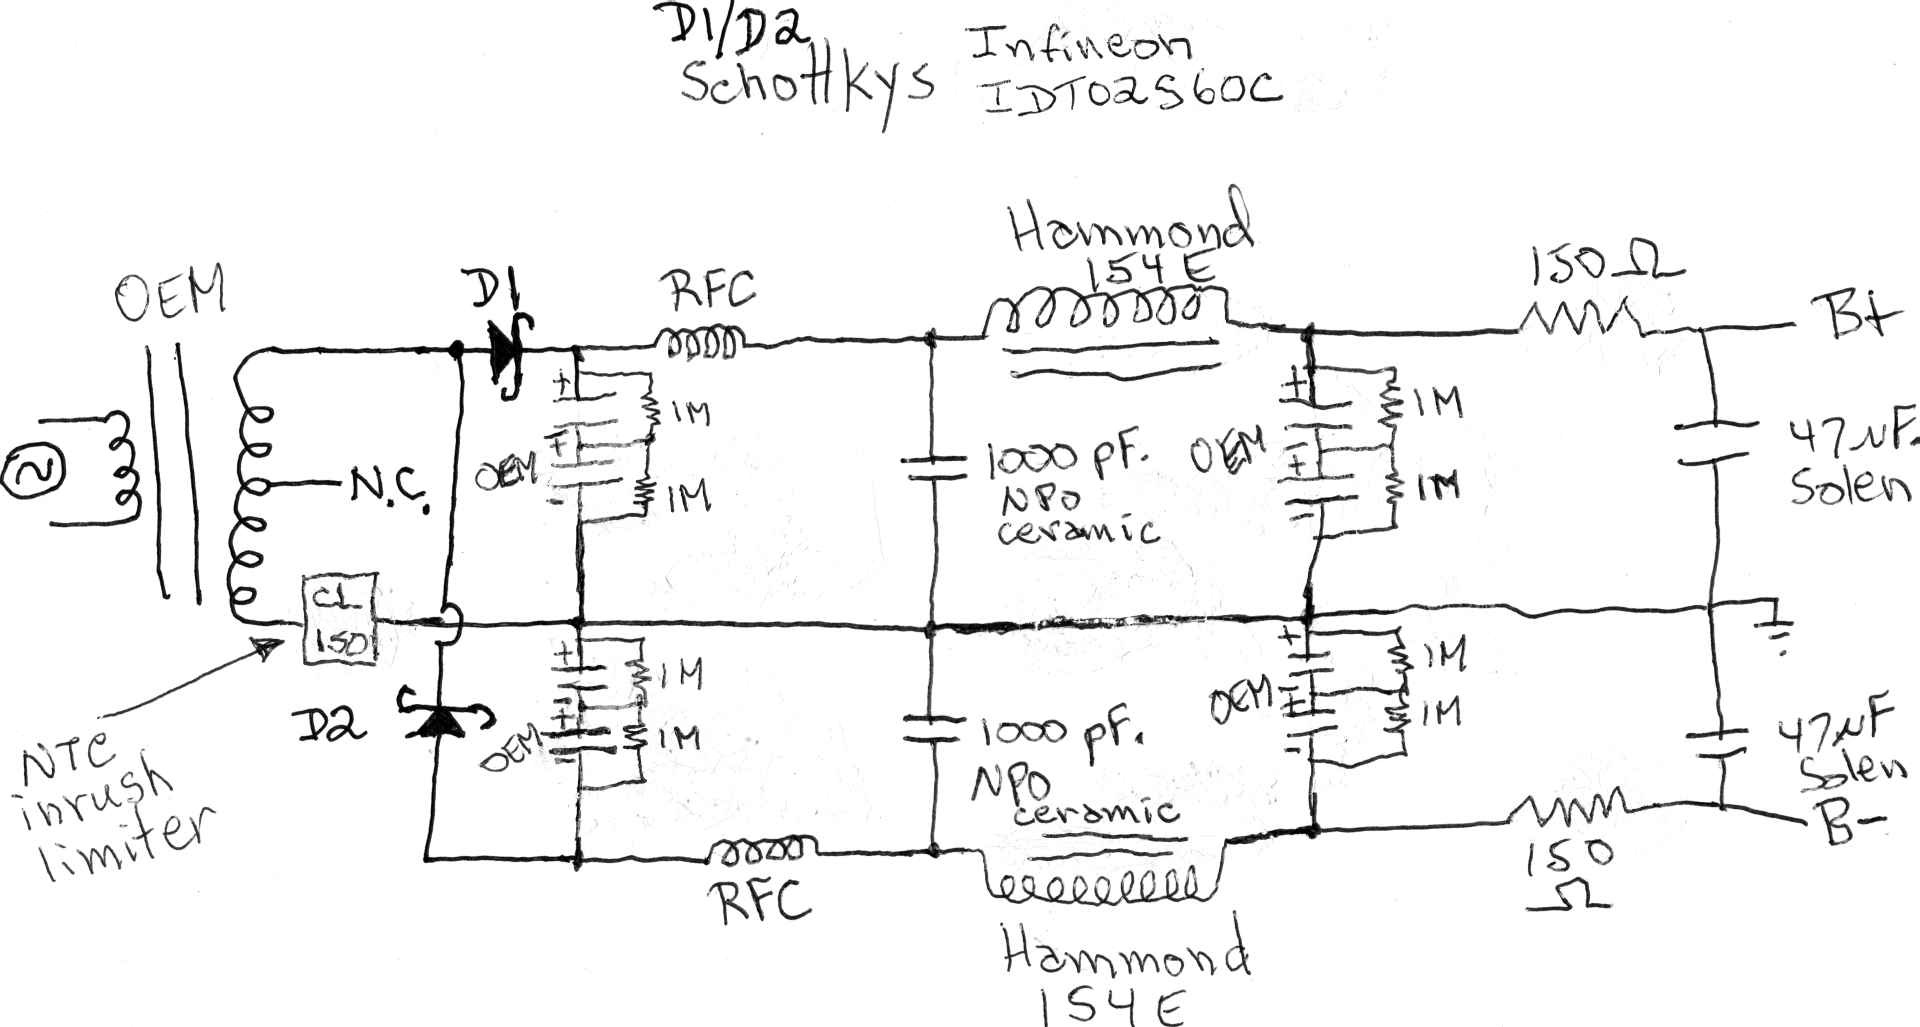 D1/D2
Schottkys
Infineon
IDT02S60C
Hammond
154E
150Ω
OEM
D1
RFC
B+
+
+
1M
1M
1M
+
OEM
+
OEM
47µF.
Solen
N.C.
-
1M
1000 pF.
NPO
ceramic
-
1M
CL
150
+
+
1M
1M
1M
OEM
+
+
OEM
1M
D2
-
1000 pF.
NPO
ceramic
-
47µF
Solen
B-
NTC
inrush
limiter
RFC
150
Ω
Hammond
154E